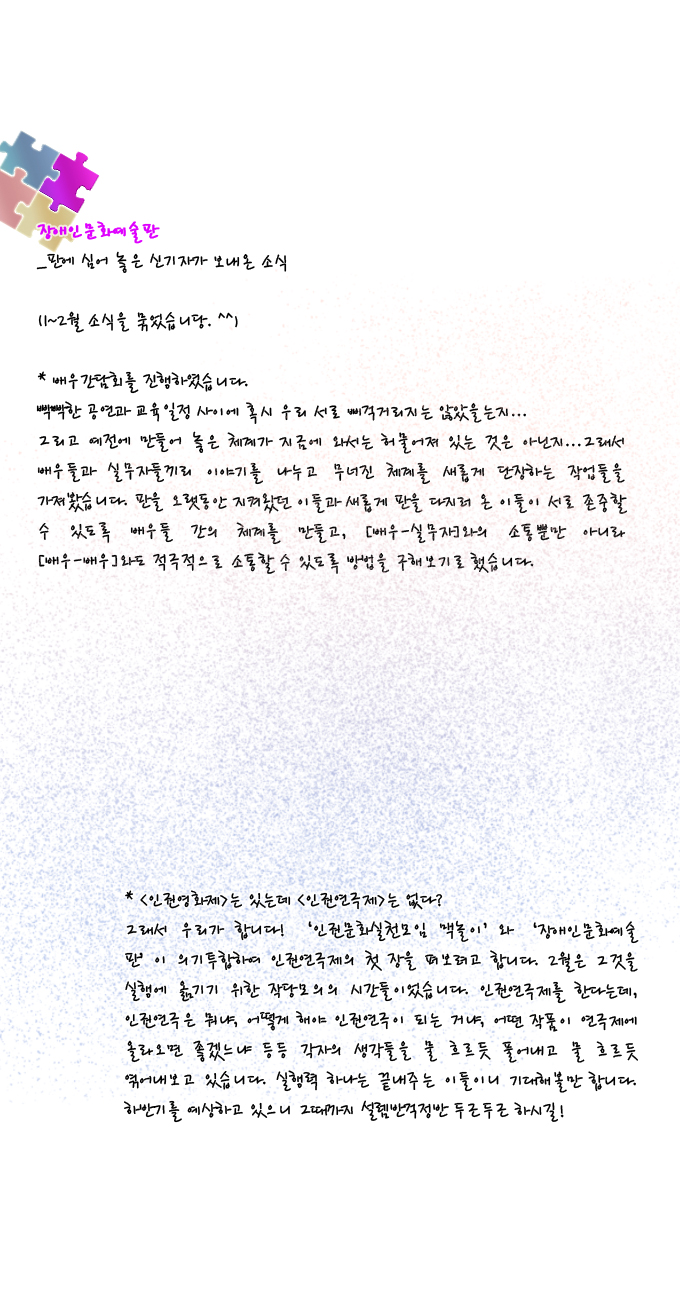 장애인문화예술판
_판에 심어 놓은 신기자가 보내온 소식
(1~2월 소식을 묶었습니당. ^^)
* 배우간담회를 진행하였습니다.
빡빡한 공연과 교육일정 사이에 혹시 우리 서로 삐걱거리지는 않았을는지...
그리고 예전에 만들어 놓은 체계가 지금에 와서는 허물어져 있는 것은 아닌지...그래서
배우들과 실무자들끼리 이야기를 나누고 무너진 체계를 새롭게 단장하는 작업들을
가져봤습니다. 판을 오랫동안 지켜왔던 이들과 새롭게 판을 다지러 온 이들이 서로 존중할
수 있도록 배우들 간의 체계를 만들고, [배우-실무자]와의 소통뿐만 아니라
[배우-배우]와도 적극적으로 소통할 수 있도록 방법을 구해보기로 했습니다.
* <인권영화제>는 있는데 <인권연극제>는 없다?
그래서 우리가 합니다! ‘인권문화실천모임 맥놀이’ 와 ‘장애인문화예술
판’ 이 의기투합하여 인권연극제의 첫 장을 펴보려고 합니다. 2월은 그것을
실행에 옮기기 위한 작당모의의 시간들이었습니다. 인권연극제를 한다는데,
인권연극은 뭐냐, 어떻게 해야 인권연극이 되는 거냐, 어떤 작품이 연극제에
올라오면 좋겠느냐 등등 각자의 생각들을 물 흐르듯 풀어내고 물 흐르듯
엮어내보고 있습니다. 실행력 하나는 끝내주는 이들이니 기대해볼만 합니다.
하반기를 예상하고 있으니 그때까지 설렘반걱정반 두근두근 하시길!